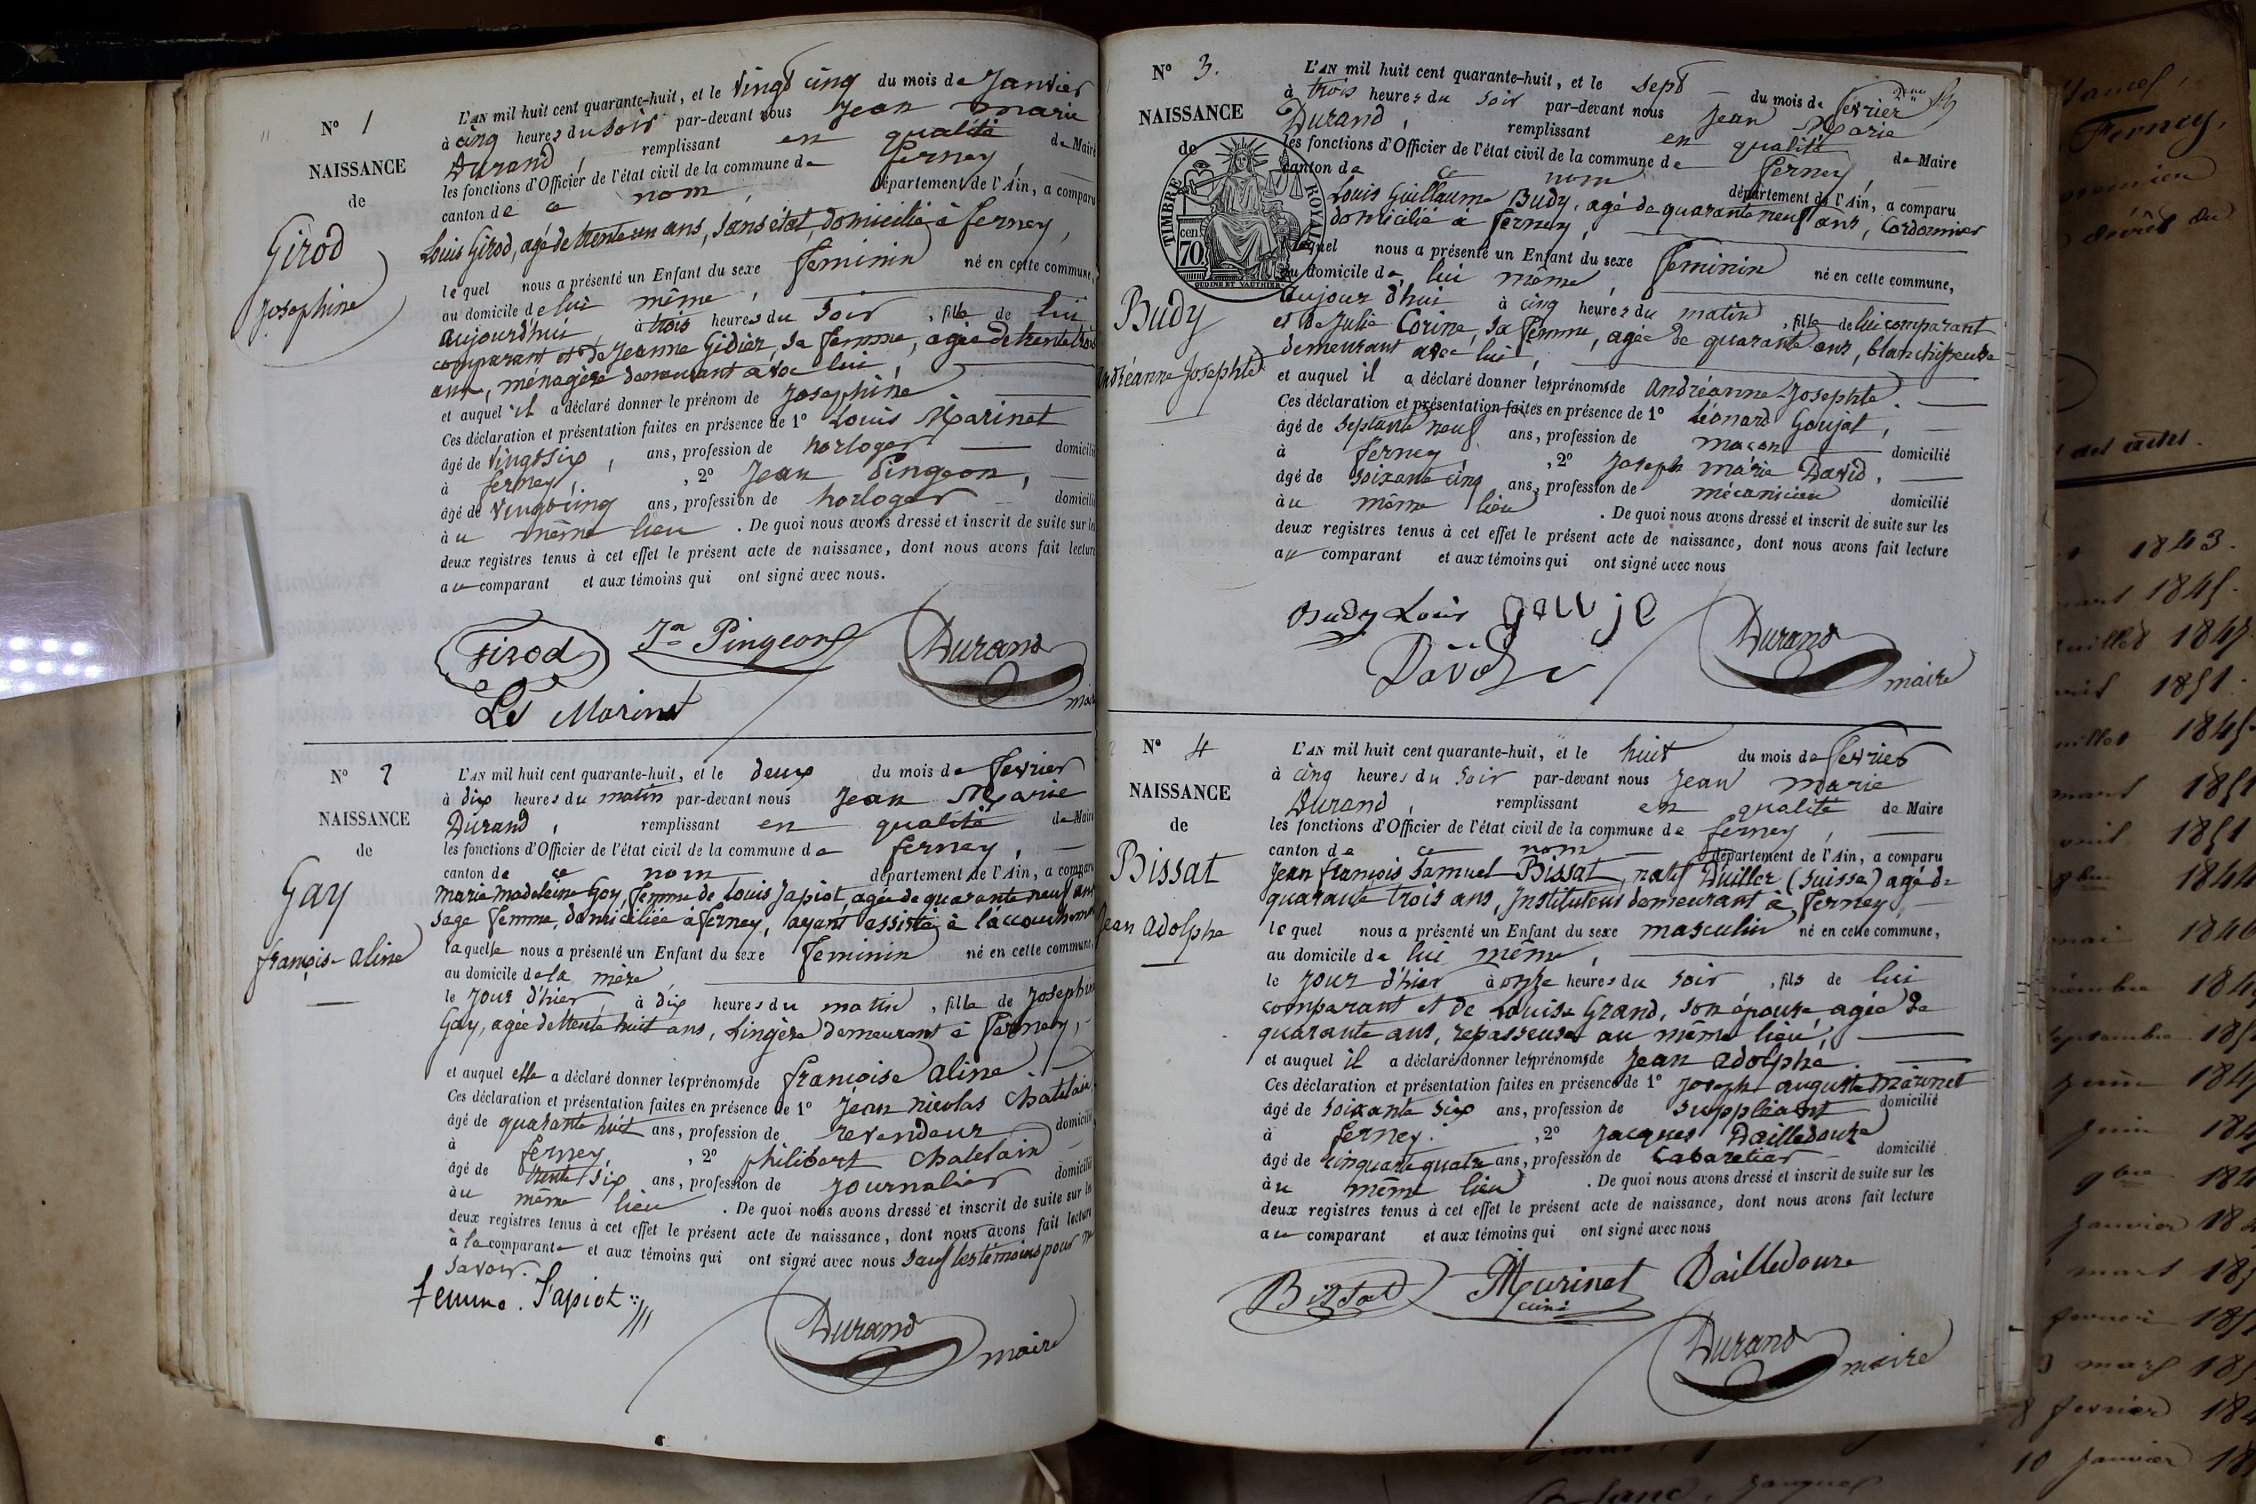 N° 1
NAISSANCE
de
Girod
Josephine
L'AN mil huit cent quarante-huit, et le vingt cinq du mois de Janvier
à cinq heures du soir par-devant nous Jean Marie
Durand, remplissant en qualité de Maire
les fonctions d'Officier de l'état civil de la commune de ferney,
canton de ce nom, département de l'Ain, a comparu
Louis Girod, agé de trente un ans, sans état, domicilié à ferney,
lequel nous a présenté un Enfant du sexe feminin né en cette commune,
au domicile de lui même,
aujourd'hui à trois heures du soir, fille de lui
comparant et de Jeanne Gidier, sa femme, agée de trente trois
ans, ménagère demeurant avec lui
et auquel il a déclaré donner le prénom de Josephine
Ces déclaration et présentation faites en présence de 1° Louis Marinet
âgé de vingt six, ans, profession de horloger domicilié
à ferney, , 2° Jean Pingeon,
âgé de vingt cinq ans, profession de horloger domicilié
au même lieu . De quoi nous avons dressé et inscrit de suite sur les
deux registres tenus à cet effet le présent acte de naissance, dont nous avons fait lecture
au comparant et aux témoins qui ont signé avec nous.
Girod Jn Pingeon Durand
Ls Marinet maire
N° 2
NAISSANCE
de
Gay
françoise aline
L'AN mil huit cent quarante-huit, et le deux du mois de fevrier
à dix heures du matin par-devant nous Jean Marie
Durand, remplissant en qualité de Maire
les fonctions d'Officier de l'état civil de la commune de ferney,
canton de ce nom département de l'Ain, a comparu
marie madeleine Goy, femme de Louis Japiot, agée de quarante neuf ans
sage femme, domiciliée à ferney, ayant assisté à l'accouchement
laquelle nous a présenté un Enfant du sexe feminin né en cette commune,
au domicile de la mère
le jour d'hier à dix heures du matin, fille de Josephine
Gay, agée de trente huit ans, Lingère demeurant à ferney,
et auquel elle a déclaré donner les prénoms de françoise aline.
Ces déclaration et présentation faites en présence de 1° Jean nicolas Chatelain
âgé de quarante huit ans, profession de revendeur domicilié
à ferney, , 2° philibert Chatelain
âgé de trente six ans, profession de journalier domicilié
au même lieu . De quoi nous avons dressé et inscrit de suite sur les
deux registres tenus à cet effet le présent acte de naissance, dont nous avons fait lecture
à la comparante et aux témoins qui ont signé avec nous sauf les témoins pour ne
savoir.
femme. Japiot
Durand maire
N° 3.
NAISSANCE
de
TIMBRE ROYAL
cen. 70
OUDINE ET VAUTHIER
Budy
andréanne Josephte
L'AN mil huit cent quarante-huit, et le sept du mois de fevrier
à trois heures du soir par-devant nous Jean Marie
Durand, remplissant en qualité de Maire
les fonctions d'Officier de l'état civil de la commune de ferney,
canton de ce nom département de l'Ain, a comparu
Louis Guillaume Budy, agé de quarante neuf ans, Cordonnier
domicilié à ferney,
lequel nous a présenté un Enfant du sexe feminin né en cette commune,
au domicile de lui même,
aujour d'hui à cinq heures du matin, fille de lui comparant
et de Julie Corine, sa femme, agée de quarante ans, blanchisseuse
demeurant avec lui,
et auquel il a déclaré donner les prénoms de andréanne Josephte.
Ces déclaration et présentation faites en présence de 1° Léonard Goujat,
âgé de septante neuf ans, profession de maçon domicilié
à ferney , 2° Joseph marie David,
âgé de soixante cinq ans, profession de mécanicien domicilié
au même lieu . De quoi nous avons dressé et inscrit de suite sur les
deux registres tenus à cet effet le présent acte de naissance, dont nous avons fait lecture
au comparant et aux témoins qui ont signé avec nous
Budy Louis gouje
David Durand
maire
N° 4
NAISSANCE
de
Bissat
Jean adolphe
L'AN mil huit cent quarante-huit, et le huit du mois de fevrier
à cinq heures du soir par-devant nous Jean marie
Durand, remplissant en qualité de Maire
les fonctions d'Officier de l'état civil de la commune de ferney,
canton de ce nom département de l'Ain, a comparu
Jean françois Samuel Bissat, natif Duiller (Suisse) agé de
quarante trois ans, Instituteur demeurant à ferney,
lequel nous a présenté un Enfant du sexe masculin né en cette commune,
au domicile de lui même,
le jour d'hier à onze heures du soir, fils de lui
comparant et de Louise Grand, son épouse agée de
quarante ans, repasseuse au même lieu,
et auquel il a déclaré donner les prénoms de Jean adolphe.
Ces déclaration et présentation faites en présence de 1° Joseph auguste Marinet
âgé de soixante six ans, profession de suppléant domicilié
à ferney. , 2° Jacques Dailledouze
âgé de cinquante quatre ans, profession de Cabaretier domicilié
au même lieu . De quoi nous avons dressé et inscrit de suite sur les
deux registres tenus à cet effet le présent acte de naissance, dont nous avons fait lecture
au comparant et aux témoins qui ont signé avec nous
Bissat Marinet Dailledouze
Durand maire
Ferney,
1843.
1845.
1851
mars 1851
avril 1851
8bre 1844
mai 1846
septembre
juin
juin
9bre
janvier
mars
mars
fevrier
10 janvier